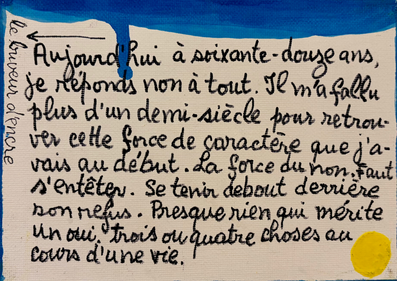 Aujourd'hui à soixante-douze ans,
je réponds non à tout. Il m'a fallu
plus d'un demi-siècle pour retrou-
ver cette force de caractère que j'a-
vais au début. La force du non. Faut
s'entêter. Se tenir debout derrière
son refus. Presque rien qui mérite
un oui. trois ou quatre choses au
cours d'une vie.
le buveur d'encre